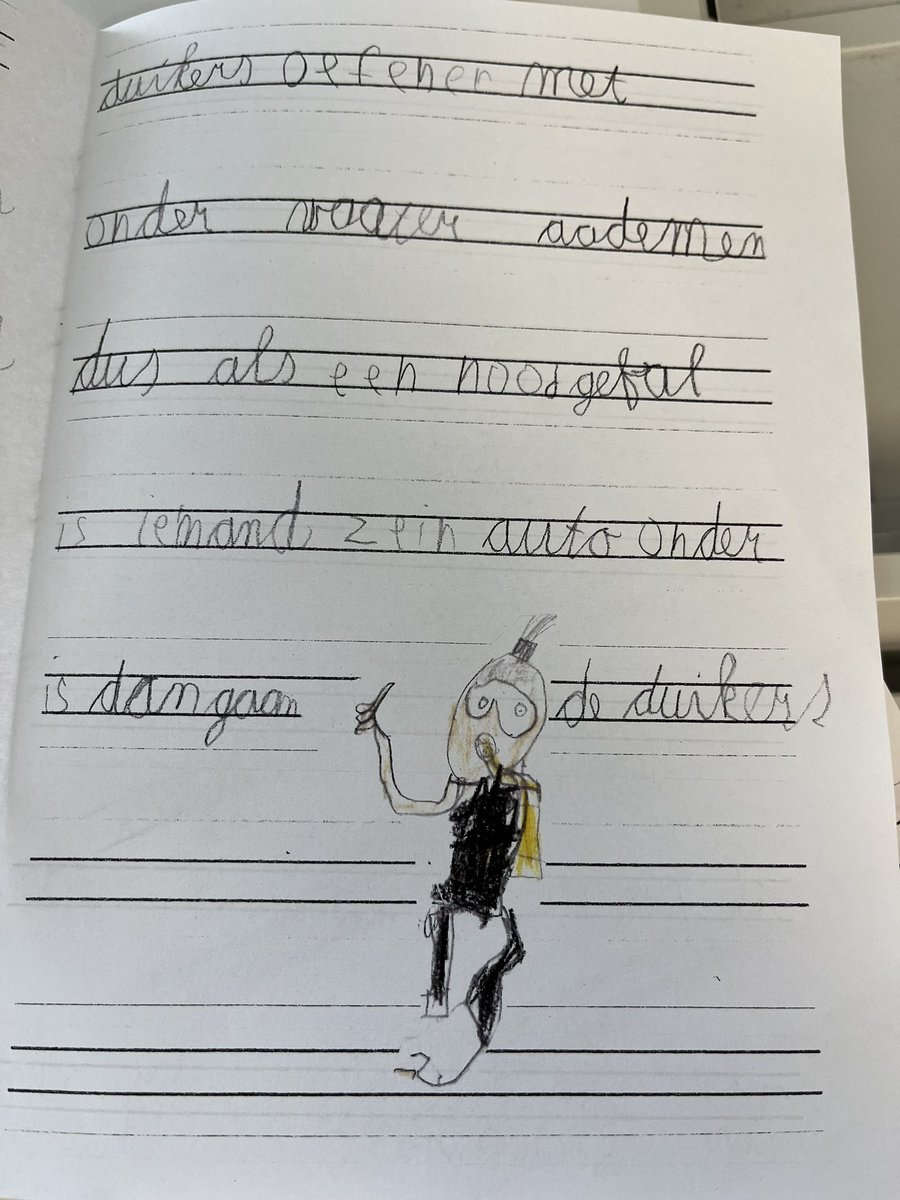 duikers oefenen met
onder waater aademen
dus als een noodgefal
is iemand, zein auto onder
is dan gaan de duikers